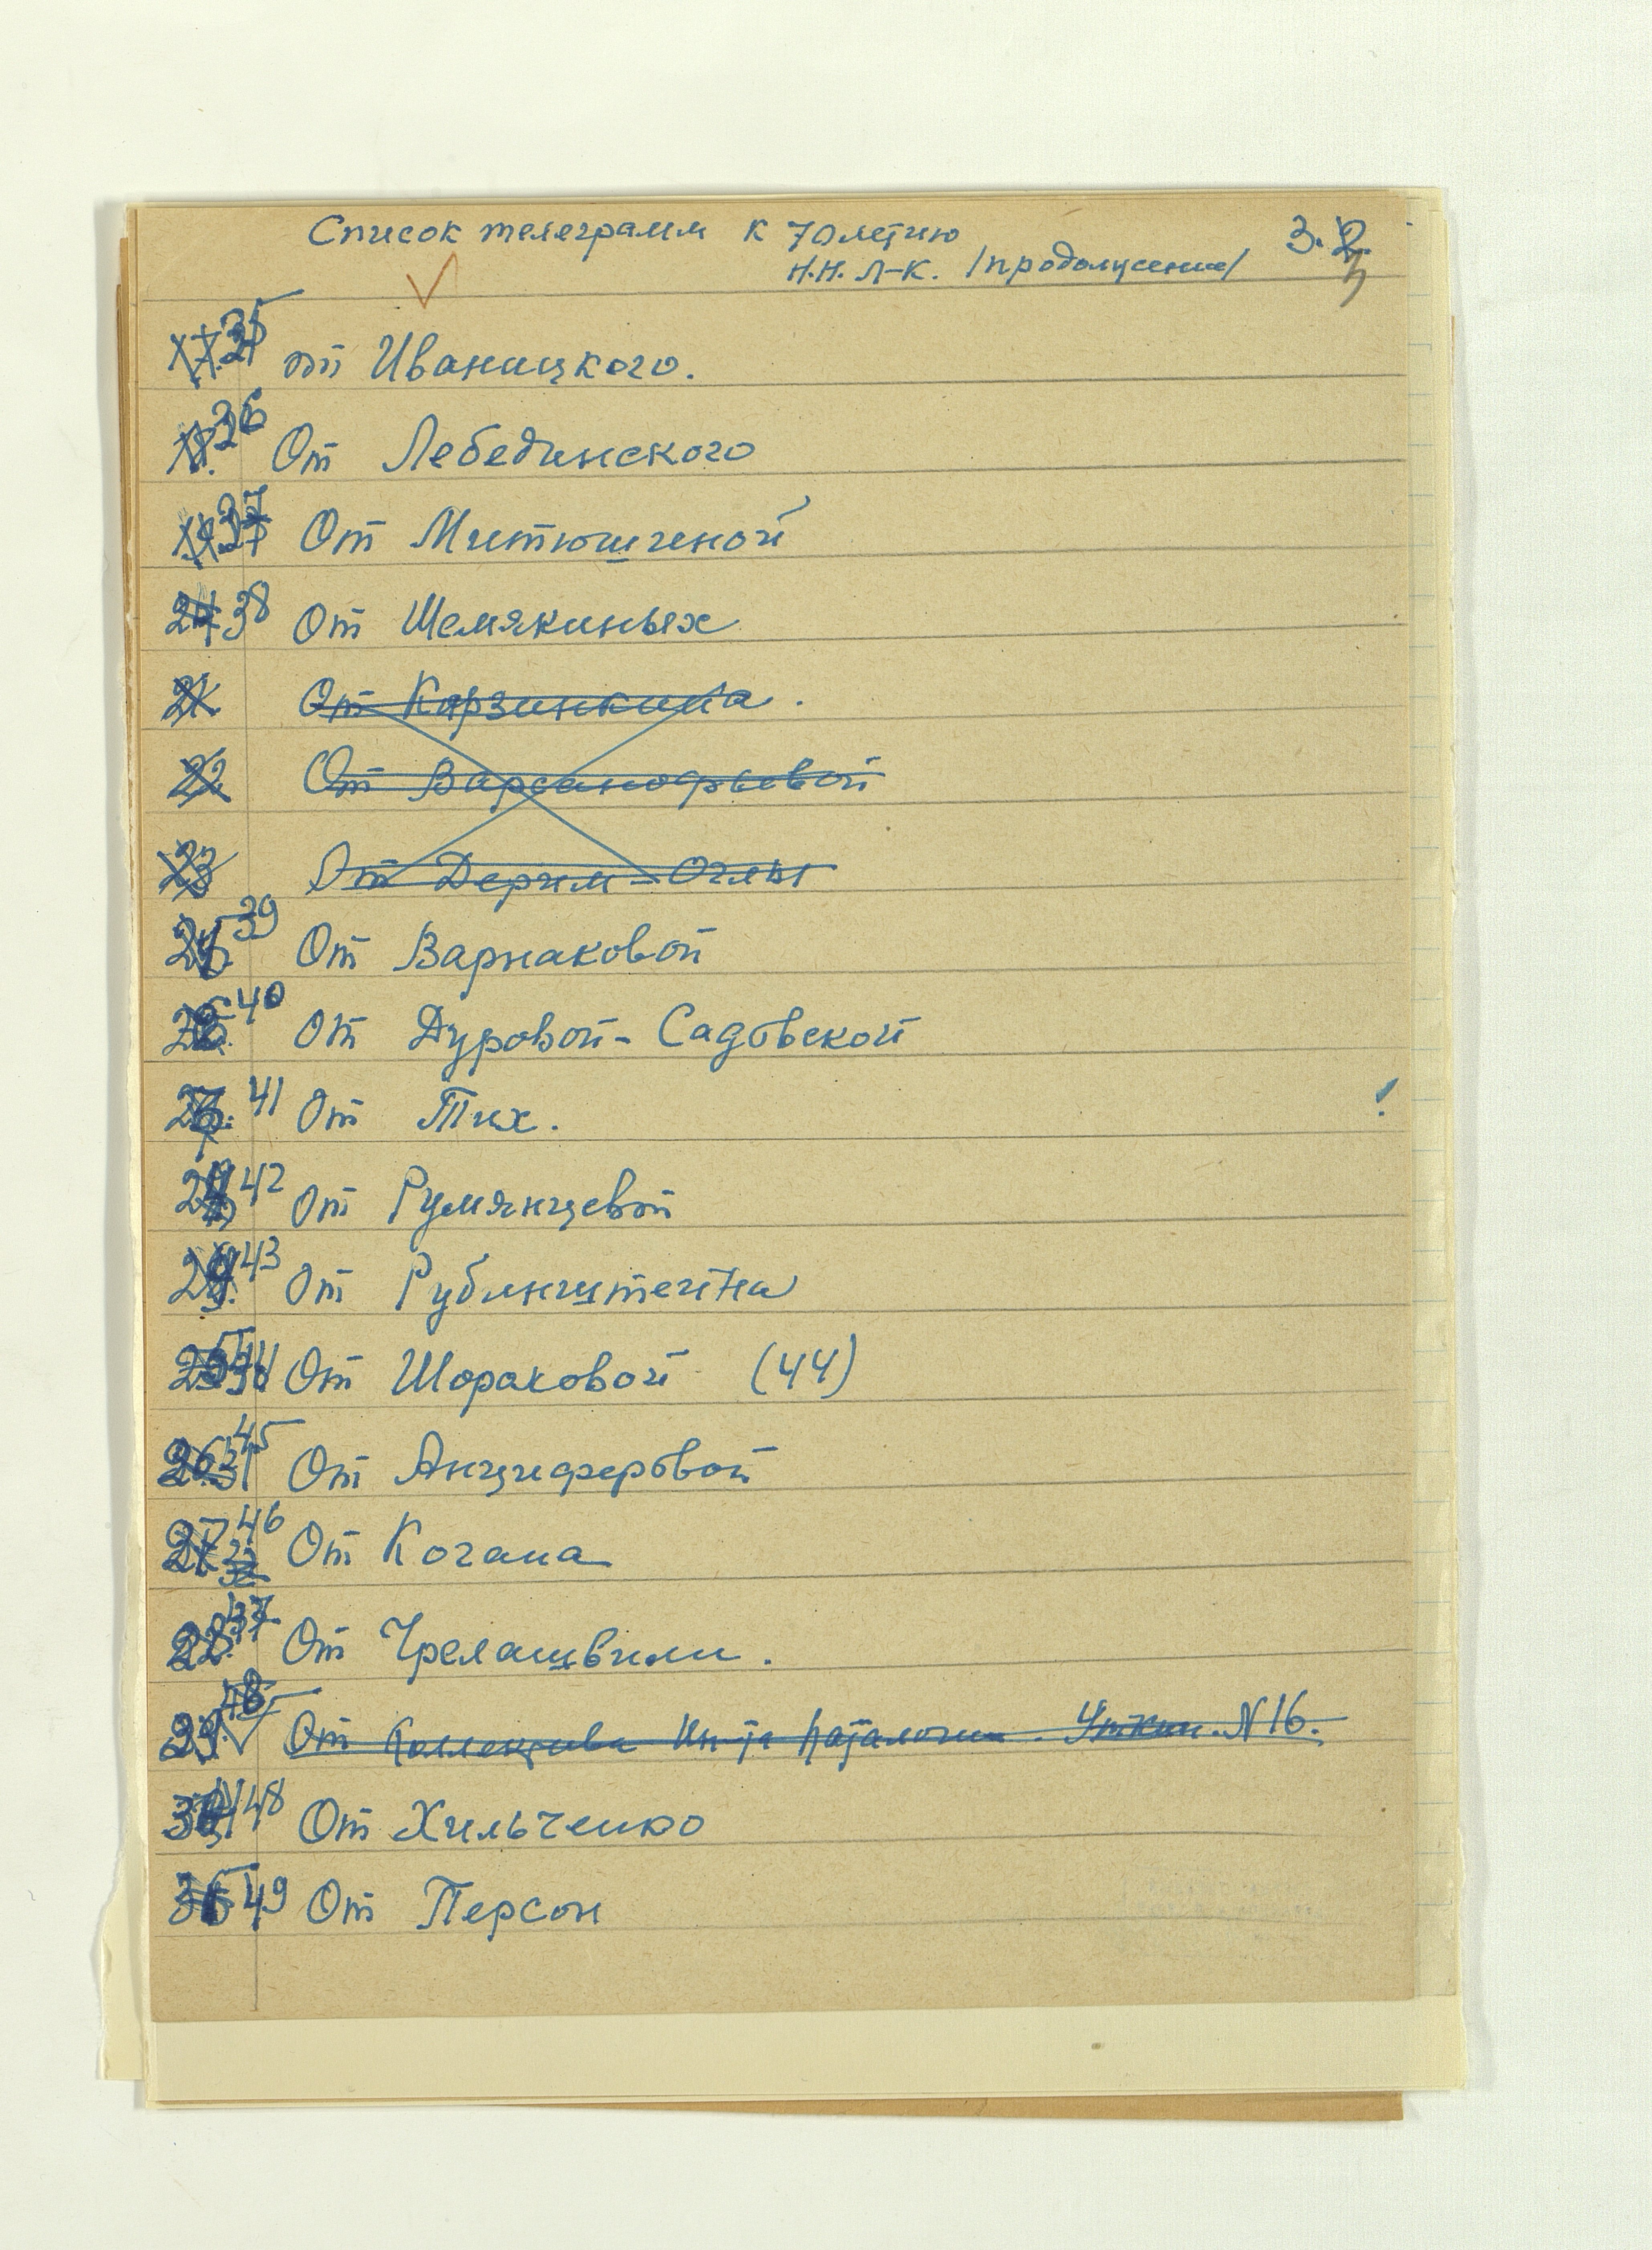 Список телеграмм к 70летию 3.
Н.Н. Л-К. /продолжение/
35 от Иваницкого.
36 От Лебединского
37 От Митюшиной
38 От Шемякиных
21 От Карзинкина.
22 От Варсанофьевой
23 От Дерим-Оглы
39 От Варнаковой
40 От Дуровой-Садовской
41 От Тих. !
42 От Румянцевой
43 От Рубинштейна
От Шораковой (44)
45 От Анциферовой
46 От Когана
47 От Чрелашвили.
48 От Коллектива Ин-та N16.
48 От Хильченко
49 От Персон